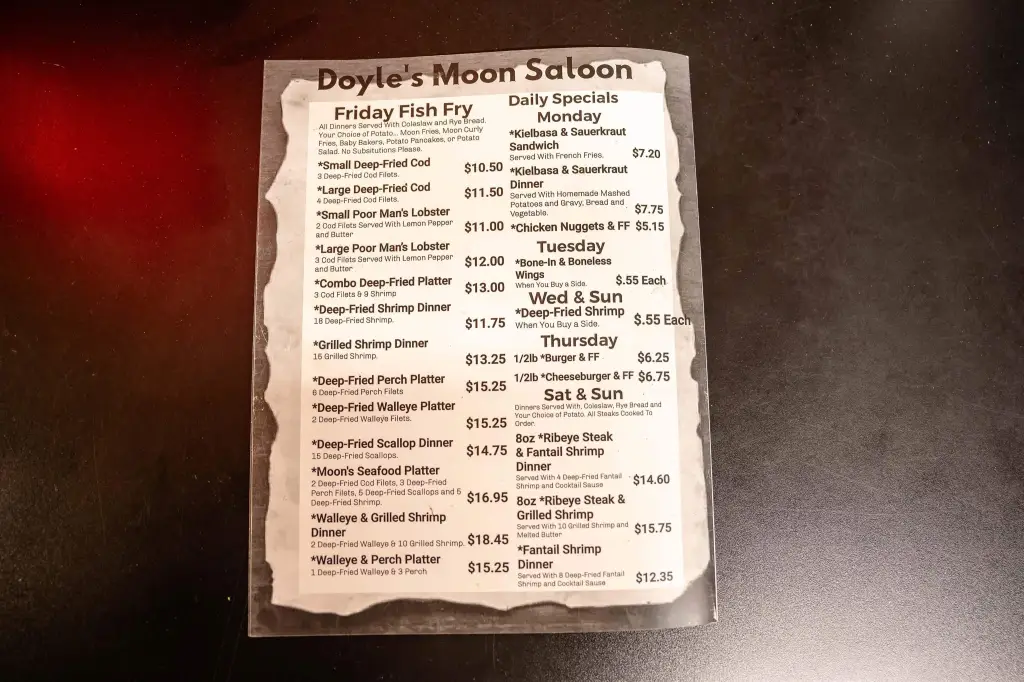 Doyle's Moon Saloon
Friday Fish Fry
All Dinners Served With Coleslaw and Rye Bread.
Your Choice of Potato... Moon Fries, Moon Curly
Fries, Baby Bakers, Potato Pancakes, or Potato
Salad. No Subsitutions Please.
*Small Deep-Fried Cod $10.50
3 Deep-Fried Cod Filets.
*Large Deep-Fried Cod $11.50
4 Deep-Fried Cod Filets.
*Small Poor Man's Lobster $11.00
2 Cod Filets Served With Lemon Pepper
and Butter
*Large Poor Man's Lobster $12.00
3 Cod Filets Served With Lemon Pepper
and Butter
*Combo Deep-Fried Platter $13.00
3 Cod Filets & 9 Shrimp
*Deep-Fried Shrimp Dinner $11.75
18 Deep-Fried Shrimp.
*Grilled Shrimp Dinner $13.25
16 Grilled Shrimp.
*Deep-Fried Perch Platter $15.25
6 Deep-Fried Perch Filets
*Deep-Fried Walleye Platter $15.25
2 Deep-Fried Walleye Filets.
*Deep-Fried Scallop Dinner $14.75
15 Deep-Fried Scallops.
*Moon's Seafood Platter $16.95
2 Deep-Fried Cod Filets, 3 Deep-Fried
Perch Filets, 5 Deep-Fried Scallops and 5
Deep-Fried Shrimp.
*Walleye & Grilled Shrimp
Dinner $18.45
2 Deep-Fried Walleye & 10 Grilled Shrimp.
*Walleye & Perch Platter $15.25
1 Deep-Fried Walleye & 3 Perch
Daily Specials
Monday
*Kielbasa & Sauerkraut
Sandwich $7.20
Served With French Fries.
*Kielbasa & Sauerkraut
Dinner
Served With Homemade Mashed
Potatoes and Gravy, Bread and
Vegetable. $7.75
*Chicken Nuggets & FF $5.15
Tuesday
*Bone-In & Boneless
Wings $.55 Each
When You Buy a Side.
Wed & Sun
*Deep-Fried Shrimp $.55 Each
When You Buy a Side.
Thursday
1/2lb *Burger & FF $6.25
1/2lb *Cheeseburger & FF $6.75
Sat & Sun
Dinners Served With, Coleslaw, Rye Bread and
Your Choice of Potato. All Steaks Cooked To
Order.
8oz *Ribeye Steak
& Fantail Shrimp
Dinner
Served With 4 Deep-Fried Fantail $14.60
Shrimp and Cocktail Sause
8oz *Ribeye Steak &
Grilled Shrimp
Served With 10 Grilled Shrimp and $15.75
Melted Butter
*Fantail Shrimp
Dinner
Served With 8 Deep-Fried Fantail $12.35
Shrimp and Cocktail Sause